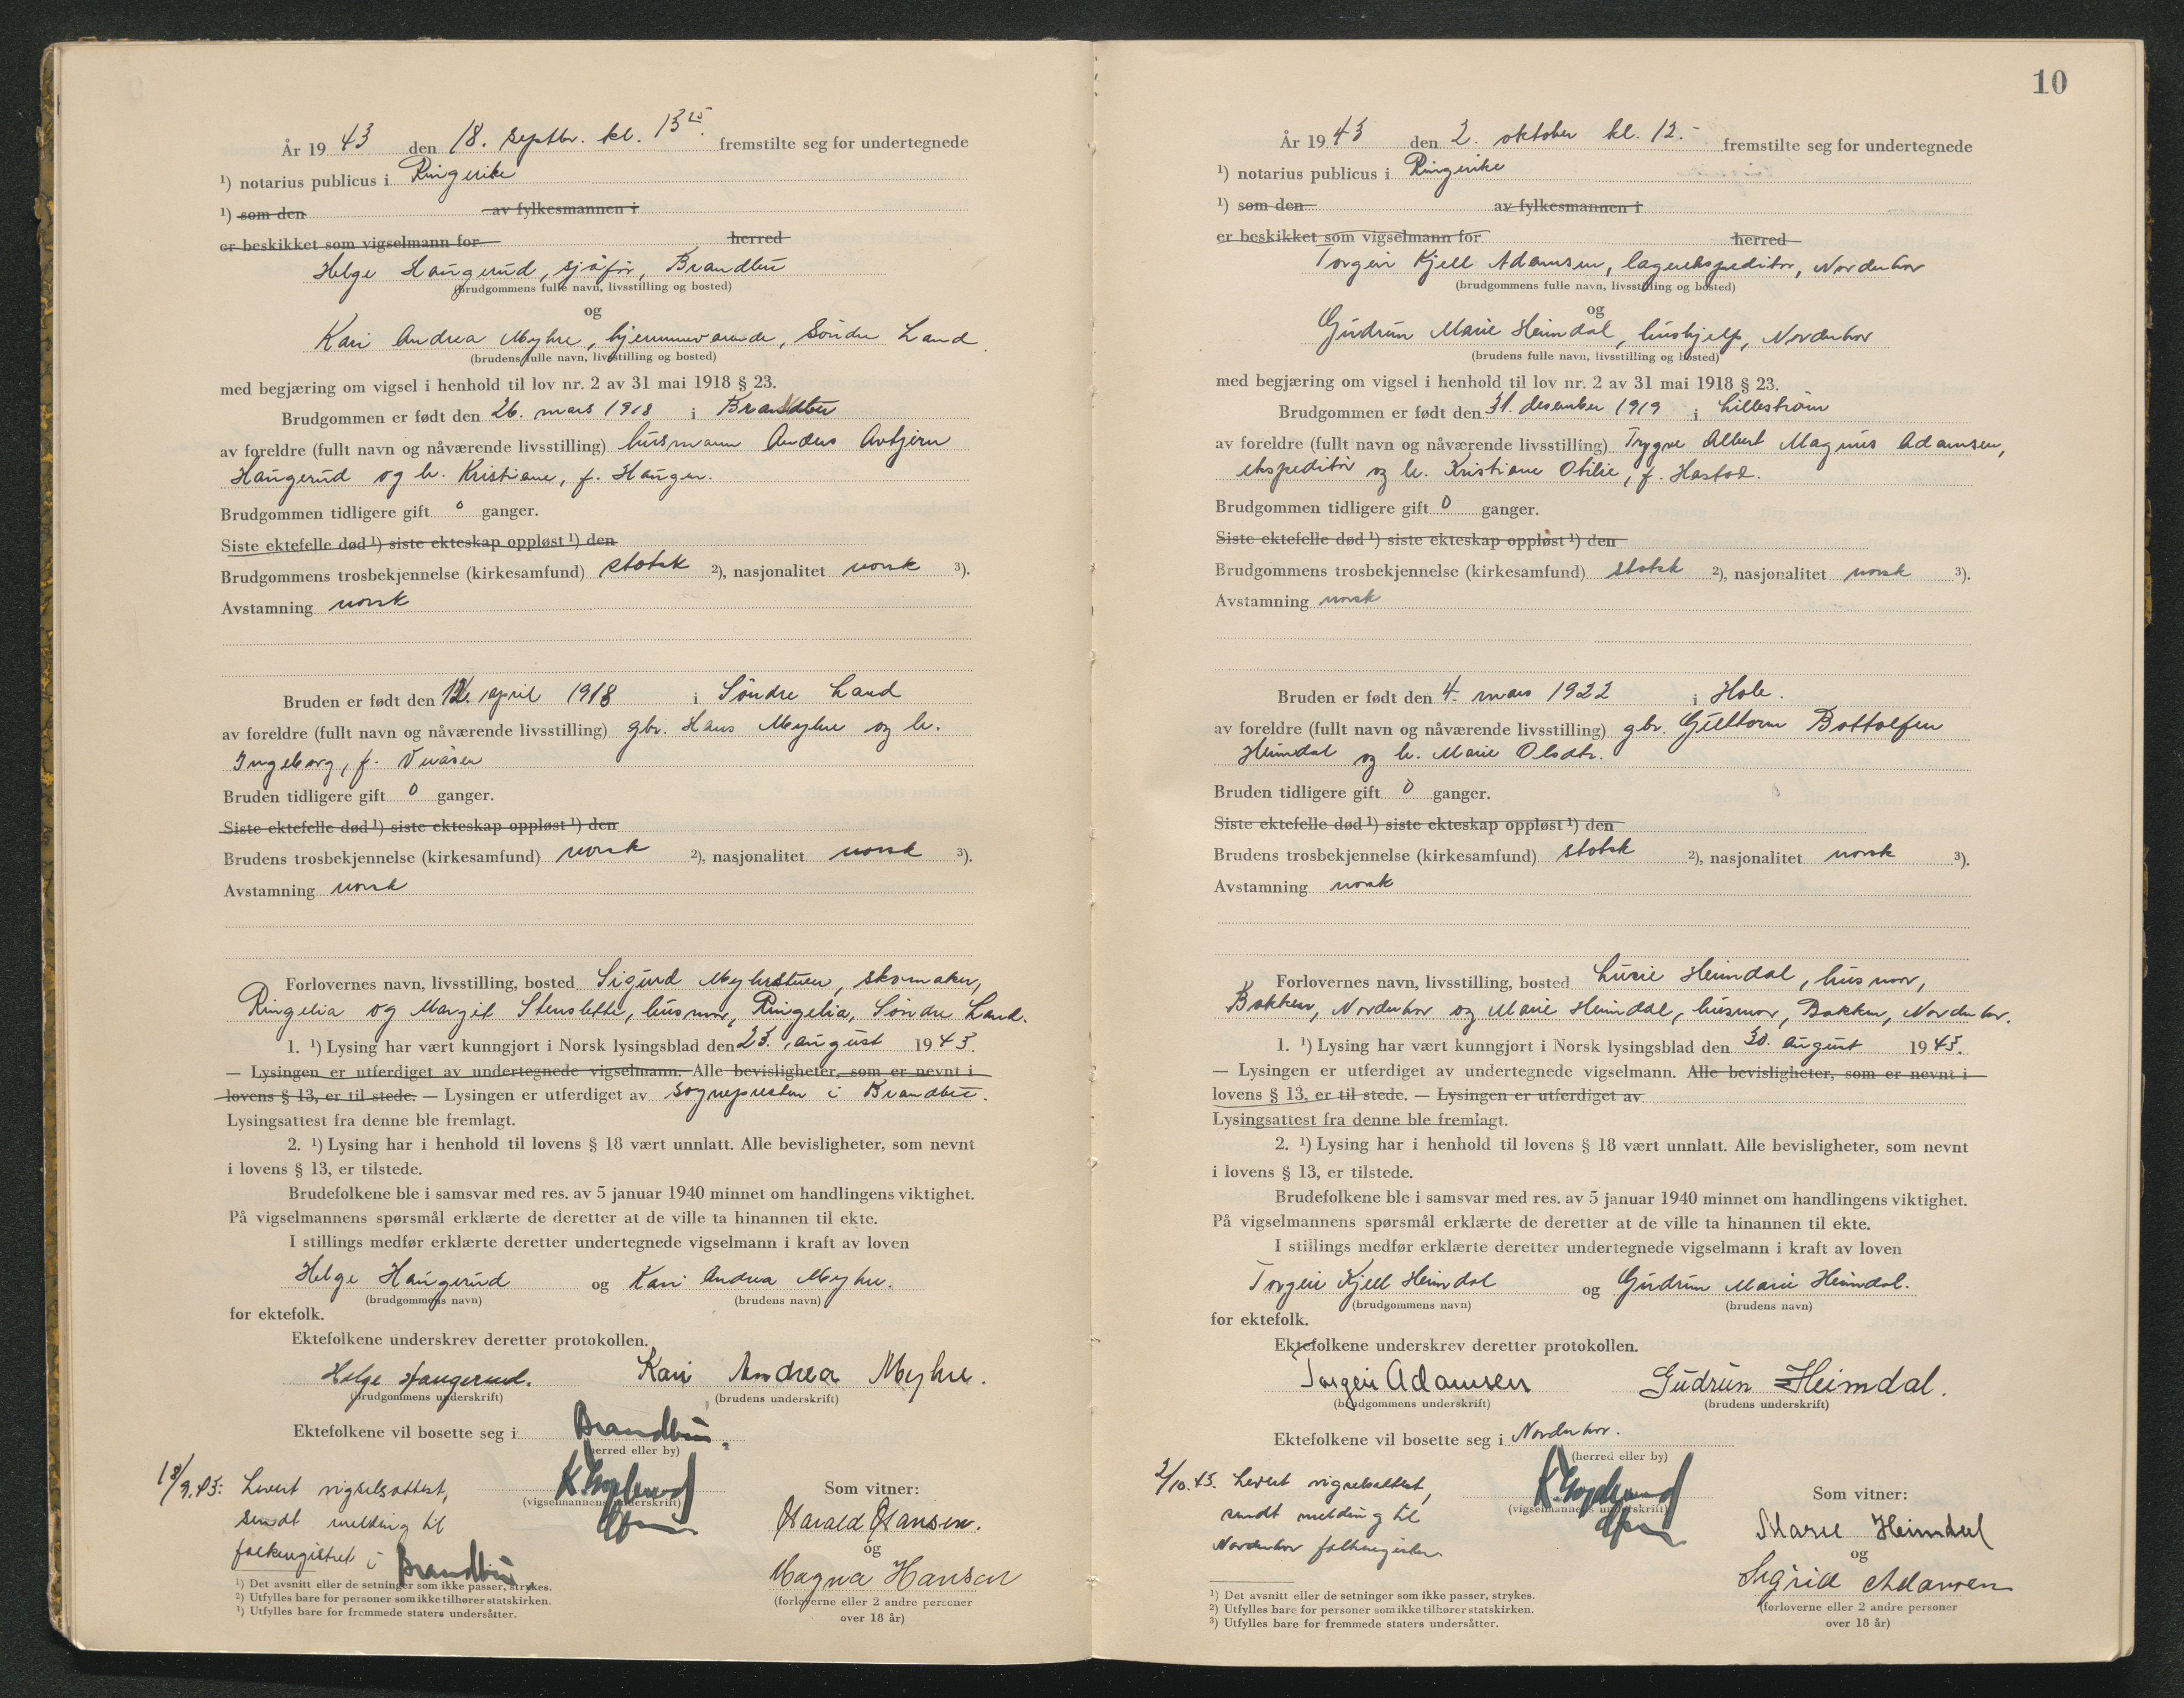 År 1943 den 18. septbr. kl. 13 15. fremstilte seg for undertegnede
¹) notarius publicus i Ringerike
¹) som den av fylkesmannen i
er beskikket som vigselmann for herred
Helge Haugerud, sjåfør, Brandbu
(brudgommens fulle navn, livsstilling og bosted)
og
Kari Andrea Myhre, hjemmeværende, Søndre Land.
(brudens fulle navn, livsstilling og bosted)
med begjæring om vigsel i henhold til lov nr. 2 av 31 mai 1918 § 23.
Brudgommen er født den 26. mars 1918 i Brandbu
av foreldre (fullt navn og nåværende livsstilling) husmann Anders
Haugerud og h. Kristiane, f. Haugen.
Brudgommen tidligere gift 0 ganger.
Siste ektefelle død ¹) siste ekteskap oppløst ¹) den
Brudgommens trosbekjennelse (kirkesamfund) statsk ²), nasjonalitet norsk ³).
Avstamning norsk
Bruden er født den 12. april 1918 i Søndre Land
av foreldre (fullt navn og nåværende livsstilling) gbr. Hans Myhre og h.
Ingeborg, f.
Bruden tidligere gift 0 ganger.
Siste ektefelle død ¹) siste ekteskap oppløst ¹) den
Brudens trosbekjennelse (kirkesamfund) norsk ²), nasjonalitet norsk ³).
Avstamning norsk
Forlovernes navn, livsstilling, bosted Sigurd Myhrstuen, skomaker,
Ringelia og Margit Stenslette, husmor, Ringelia, Søndre Land.
1. ¹) Lysing har vært kunngjort i Norsk lysingsblad den 23. august 1943.
— Lysingen er utferdiget av undertegnede vigselmann. Alle bevisligheter, som er nevnt i
lovens § 13, er til stede. — Lysingen er utferdiget av sognepresten i Brandbu.
Lysingsattest fra denne ble fremlagt.
2. ¹) Lysing har i henhold til lovens § 18 vært unnlatt. Alle bevisligheter, som nevnt
i lovens § 13, er tilstede.
Brudefolkene ble i samsvar med res. av 5 januar 1940 minnet om handlingens viktighet.
På vigselmannens spørsmål erklærte de deretter at de ville ta hinannen til ekte.
I stillings medfør erklærte deretter undertegnede vigselmann i kraft av loven
Helge Haugerud og Kari Andrea Myhre.
(brudgommens navn) (brudens navn)
for ektefolk.
Ektefolkene underskrev deretter protokollen.
Helge Haugerud. Kari Andrea Myhre.
(brudgommens underskrift) (brudens underskrift)
Ektefolkene vil bosette seg i Brandbu.
(herred eller by)
18/9.43: Levert vigselsattest,
sendt melding til
folkeregistret i Brandbu
(vigselmannens underskrift)
Som vitner:
Harald Hansen.
og
Magna Hansen
(forloverne eller 2 andre personer
over 18 år)
¹) Det avsnitt eller de setninger som ikke passer, strykes.
²) Utfylles bare for personer som ikke tilhører statskirken.
¹) Utfylles bare for fremmede staters undersåtter.
10
År 1943 den 2. oktober kl. 12.- fremstilte seg for undertegnede
¹) notarius publicus i Ringerike
¹) som den av fylkesmannen i
er beskikket som vigselmann for herred
Torgeir Kjell Adamsen, lagerekspeditør, Norderhov
(brudgommens fulle navn, livsstilling og bosted)
og
Gudrun Marie Heimdal, hushjelp, Norderhov
(brudens fulle navn, livsstilling og bosted)
med begjæring om vigsel i henhold til lov nr. 2 av 31 mai 1918 § 23.
Brudgommen er født den 31. desember 1919 i Lillestrøm
av foreldre (fullt navn og nåværende livsstilling) Trygve Albert Magnus Adamsen,
ekspeditør og h. Kristiane Otilie, f. Hastad.
Brudgommen tidligere gift 0 ganger.
Siste ektefelle død ¹) siste ekteskap oppløst ¹) den
Brudgommens trosbekjennelse (kirkesamfund) statsk ²), nasjonalitet norsk ³).
Avstamning norsk
Bruden er født den 4. mars 1922 i Hole.
av foreldre (fullt navn og nåværende livsstilling) gbr. Gulltorm Bottolfsen
Heimdal og h. Marie Olsdtr.
Bruden tidligere gift 0 ganger.
Siste ektefelle død ¹) siste ekteskap oppløst ¹) den
Brudens trosbekjennelse (kirkesamfund) statsk ²), nasjonalitet norsk ³).
Avstamning norsk
Forlovernes navn, livsstilling, bosted Lucie Heimdal, husmor,
Bakken, Norderhov og Marie Heimdal, husmor, Bakken, Norderhov.
1. ¹) Lysing har vært kunngjort i Norsk lysingsblad den 30. august 1943.
— Lysingen er utferdiget av undertegnede vigselmann. Alle bevisligheter, som er nevnt i
lovens § 13, er til stede. — Lysingen er utferdiget av
Lysingsattest fra denne ble fremlagt.
2. ¹) Lysing har i henhold til lovens § 18 vært unnlatt. Alle bevisligheter, som nevnt
i lovens § 13, er tilstede.
Brudefolkene ble i samsvar med res. av 5 januar 1940 minnet om handlingens viktighet.
På vigselmannens spørsmål erklærte de deretter at de ville ta hinannen til ekte.
I stillings medfør erklærte deretter undertegnede vigselmann i kraft av loven
Torgeir Kjell Heimdal og Gudrun Marie Heimdal.
(brudgommens navn) (brudens navn)
for ektefolk.
Ektefolkene underskrev deretter protokollen.
Torgeir Adamsen Gudrun Heimdal.
(brudgommens underskrift) (brudens underskrift)
Ektefolkene vil bosette seg i Norderhov.
(herred eller by)
2/10.43. Levert vigselsattest,
sendt melding til
Norderhov folkeregister.
(vigselmannens underskrift)
Som vitner:
Marie Heimdal
og
Sigrid Adamsen
(forloverne eller 2 andre personer
over 18 år)
¹) Det avsnitt eller de setninger som ikke passer, strykes.
²) Utfylles bare for personer som ikke tilhører statskirken.
³) Utfylles bare for fremmede staters undersåtter.